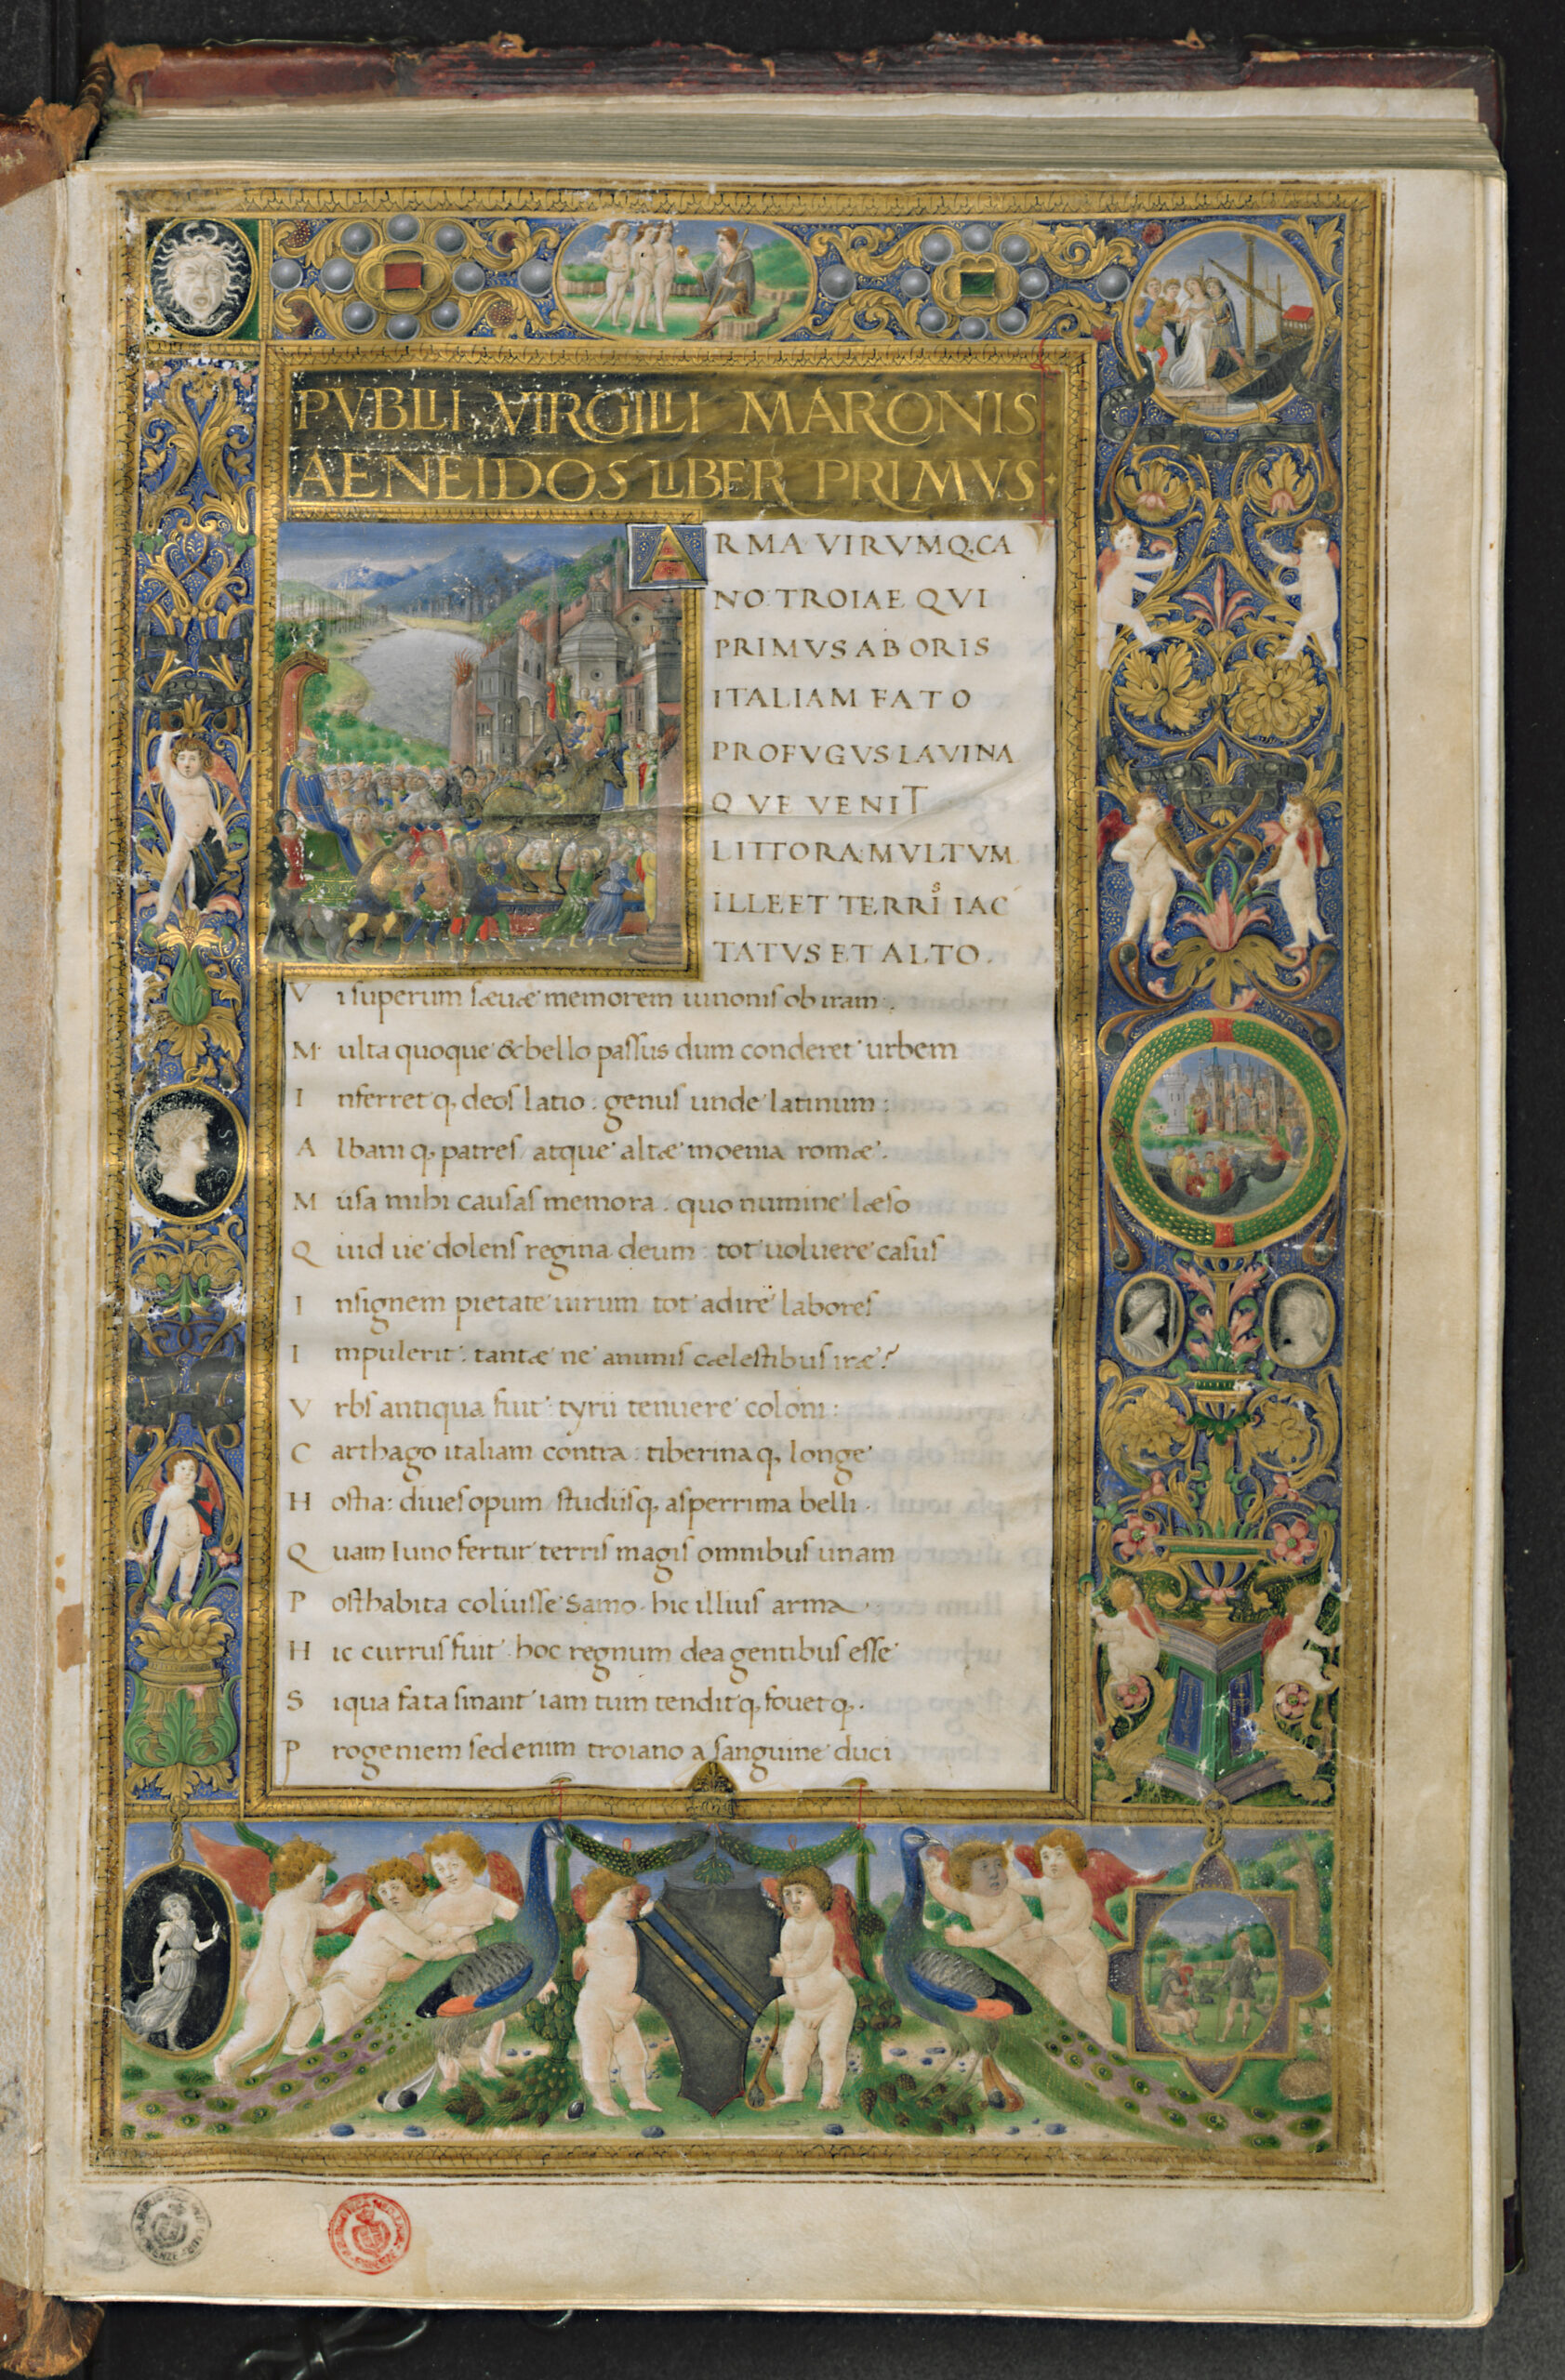 PVBLII VIRGILII MARONIS
AENEIDOS LIBER PRIMVS·
ARMA VIRVMQ.CA
NO TROIAE QVI
PRIMVS AB ORIS
ITALIAM FATO
PROFVGVS LAVINA
QVE VENIT
LITTORA MVLTVM
ILLE ET TERRIS IAC
TATVS ET ALTO.
Vi superum sæuæ memorem iunonis ob iram.
Multa quoque & bello passus dum conderet urbem
Inferret q, deos latio: genus unde latinum:
Albani q, patres atque altæ moenia romæ.
Musa mihi causas memora. quo numine læso
Quid ue dolens regina deum: tot uoluere casus
Insignem pietate uirum tot adire labores
Impulerit: tantæ ne animis cælestibus iræ?
Vrbs antiqua fuit: tyrii tenuere coloni:
Carthago italiam contra: tiberina q, longe
Hostia: diues opum studiisq, asperrima belli.
Quam Iuno fertur terris magis omnibus unam
Posthabita coluisse Samo. hic illius arma
Hic currus fuit. hoc regnum dea gentibus esse
Siqua fata sinant iam tum tendit q, fouet q,.
Progeniem sed enim troiano a sanguine duci